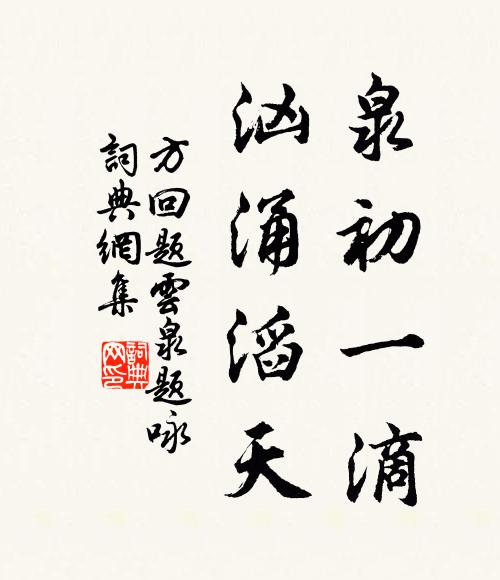 泉初一滴
汹涌滔天
方回題雲泉題咏
詞典網集
詞典
网印